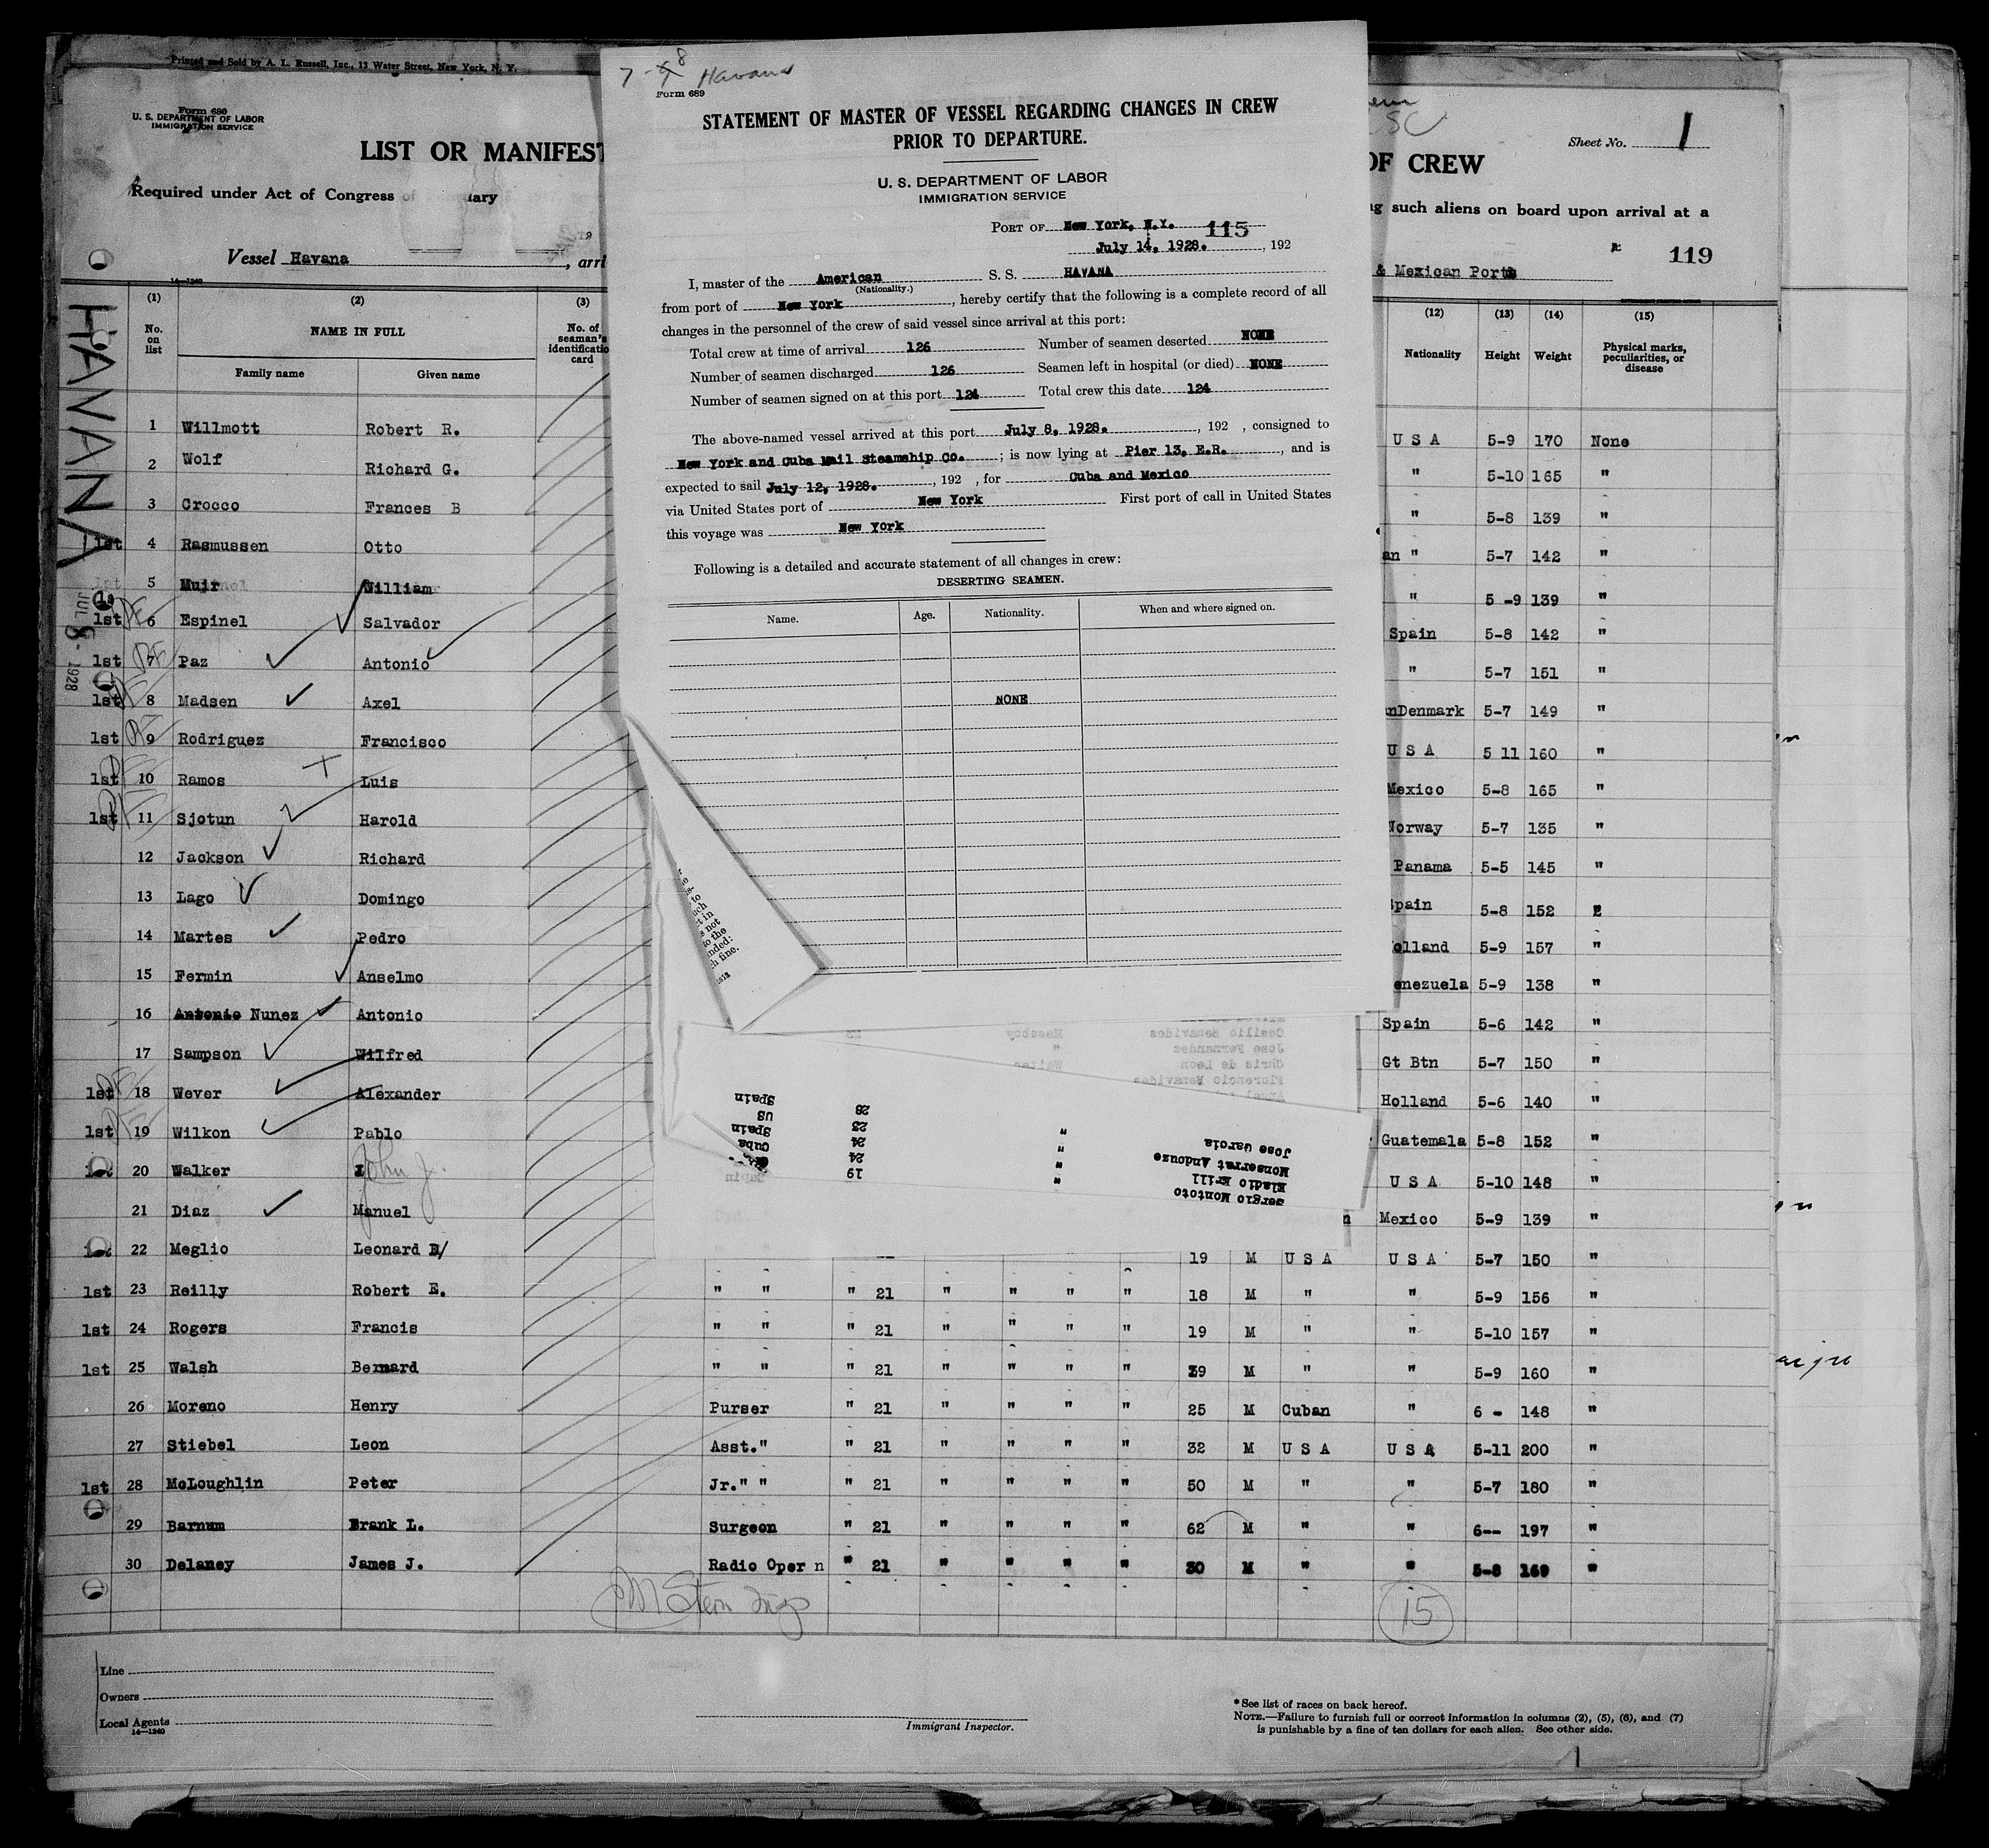 Printed and Sold by A. L. Russell, Inc., 13 Water Street, New York, N. Y.
Form 680
U. S. DEPARTMENT OF LABOR
IMMIGRATION SERVICE
LIST OR MANIFEST
Required under Act of Congress
Vessel Havana, arri
HAVANA
JUL 8 - 1928
(1) (2) (3)
No. on list
NAME IN FULL
Family name Given name
No. of seaman's identification card
1 Willmott Robert R.
2 Wolf Richard G.
3 Crocco Frances B
1st 4 Rasmussen Otto
5 Muir William
1st 6 Espinel Salvador
1st 7 Paz Antonio
1st 8 Madsen Axel
1st 9 Rodriguez Francisco
1st 10 Ramos Luis
1st 11 Sjotun Harold
12 Jackson Richard
13 Lago Domingo
14 Martes Pedro
15 Fermin Anselmo
16 Antonio Nunez Antonio
17 Sampson Wilfred
1st 18 Wever Alexander
1st 19 Wilkon Pablo
20 Walker John J.
21 Diaz Manuel
22 Meglio Leonard E/
1st 23 Reilly Robert E.
1st 24 Rogers Francis
1st 25 Walsh Bernard
26 Moreno Henry
27 Stiebel Leon
1st 28 McLoughlin Peter
29 Barnum Frank L.
30 Delaney James J.
Line
Owners
Local Agents
14—1240
7-8 Havana
Form 689
STATEMENT OF MASTER OF VESSEL REGARDING CHANGES IN CREW
PRIOR TO DEPARTURE.
U. S. DEPARTMENT OF LABOR
IMMIGRATION SERVICE
PORT OF New York, N.Y. 115
July 14, 1928. , 192
I, master of the American S. S. HAVANA
(Nationality.)
from port of New York, hereby certify that the following is a complete record of all
changes in the personnel of the crew of said vessel since arrival at this port:
Total crew at time of arrival 126 Number of seamen deserted NONE
Number of seamen discharged 126 Seamen left in hospital (or died) NONE
Number of seamen signed on at this port 124 Total crew this date 124
The above-named vessel arrived at this port July 8, 1928. , 192 , consigned to
New York and Cuba Mail Steamship Co. ; is now lying at Pier 13, E.R. , and is
expected to sail July 12, 1928. , 192 , for Cuba and Mexico
via United States port of New York First port of call in United States
this voyage was New York
Following is a detailed and accurate statement of all changes in crew:
DESERTING SEAMEN.
Name. Age. Nationality. When and where signed on.
NONE
Cesilio Benavides Messboy
Jose Fernandez "
Chris de Leon Waiter
Florencio Benavides
Spain 28
US 23
Spain 24 " Jose Garcia
Cuba 24 " Monserrat Andouze
19 " Eladio Krill
" Sergio Montoto
OF CREW
Sheet No. 1
such aliens on board upon arrival at a
& Mexican Ports
119
(12) (13) (14) (15)
Nationality Height Weight Physical marks, peculiarities, or disease
U S A 5-9 170 None
" 5-10 165 "
" 5-8 139 "
an " 5-7 142 "
" 5 -9 139 "
Spain 5-8 142 "
" 5-7 151 "
Denmark 5-7 149 "
U S A 5 11 160 "
Mexico 5-8 165 "
Norway 5-7 135 "
Panama 5-5 145 "
Spain 5-8 152 "
olland 5-9 157 "
enezuela 5-9 138 "
Spain 5-6 142 "
Gt Btn 5-7 150 "
Holland 5-6 140 "
Guatemala 5-8 152 "
U S A 5-10 148 "
Mexico 5-9 139 "
19 M U S A U S A 5-7 150 "
" " " 21 " " " " 18 M " " 5-9 156 "
" " " 21 " " " " 19 M " " 5-10 157 "
" " " 21 " " " " 39 M " " 5-9 160 "
Purser " 21 " " " " 25 M Cuban " 6 - 148 "
Asst." " 21 " " " " 32 M U S A U S A 5-11 200 "
Jr." " " 21 " " " " 50 M " " 5-7 180 "
Surgeon " 21 " " " " 62 M " " 6-- 197 "
Radio Oper n " 21 " " " " 30 M " " 5-8 169 "
M Stern Insp
15
Immigrant Inspector.
* See list of races on back hereof.
NOTE.—Failure to furnish full or correct information in columns (2), (5), (6), and (7)
is punishable by a fine of ten dollars for each alien. See other side.